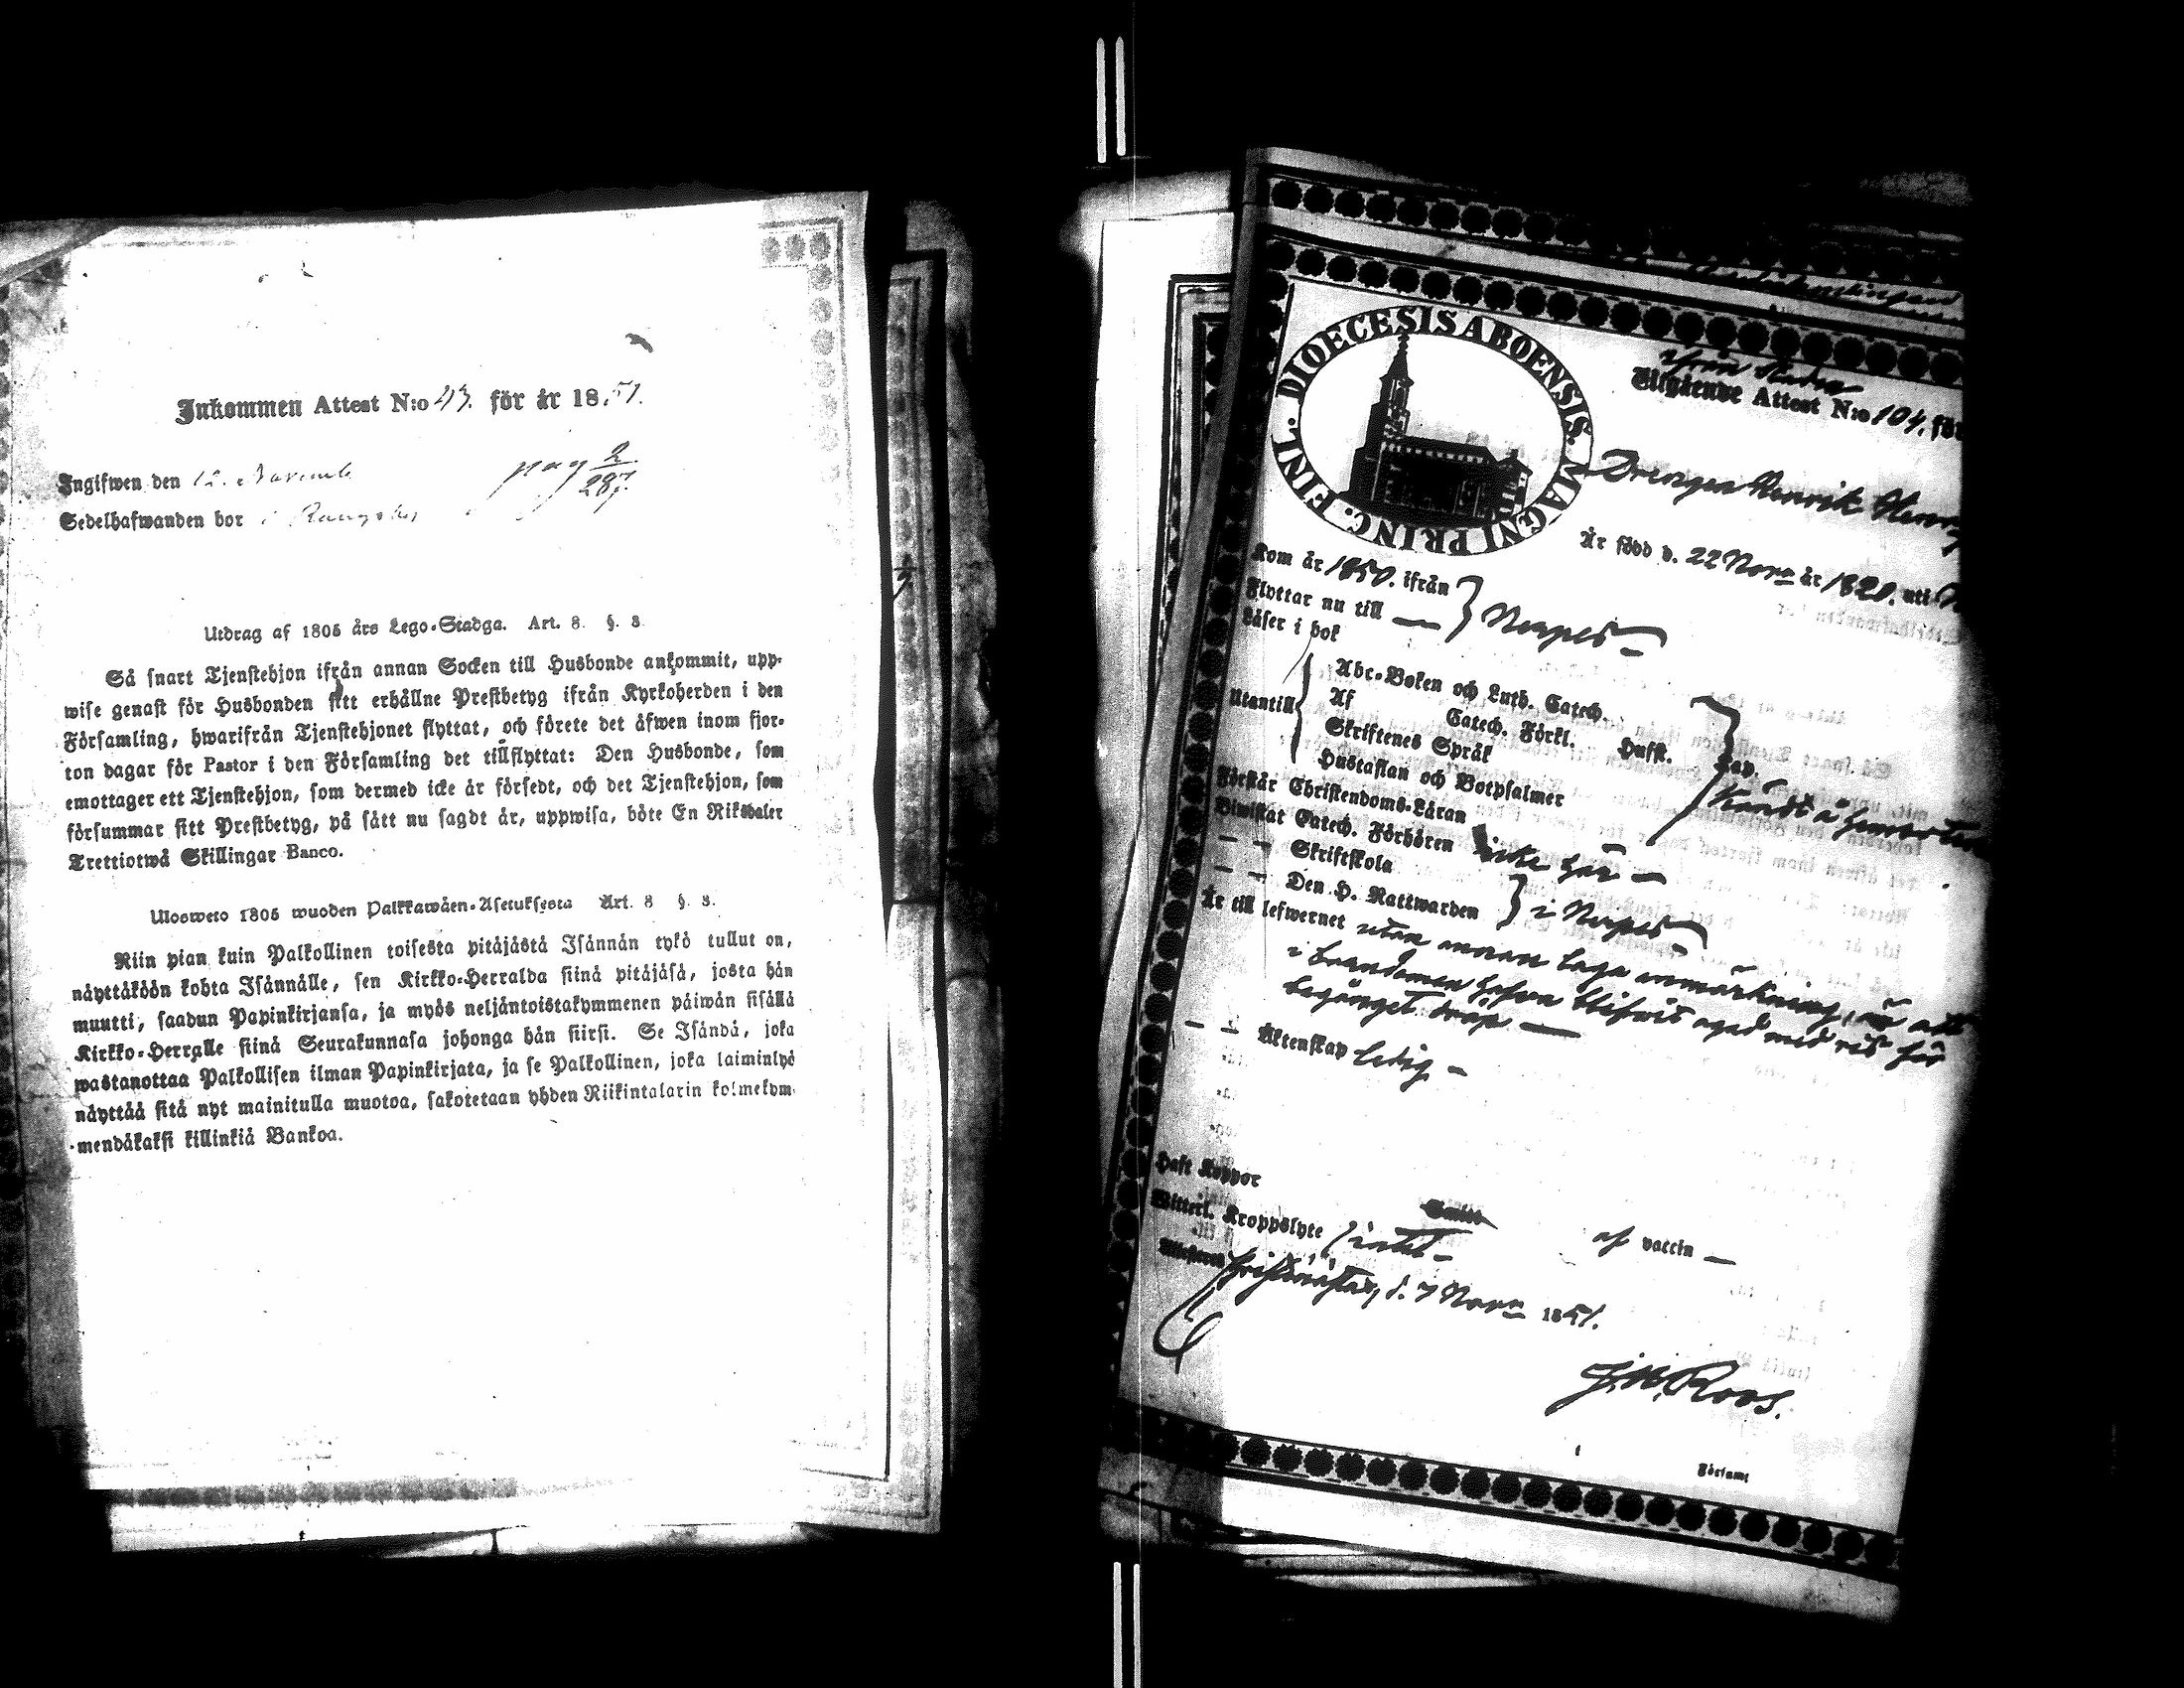 Inkommen Attest N:o 43. för år 1851.
Ingifwen den 12. Novemb
pag 2/287.
Sedelhafwanden bor i
Utdrag af 1805 års Lego-Stadga. Art. 8. §. 3.
Så snart Tjenstehjon ifrån annan Socken till Husbonde ankommit, upp-
wise genast för Husbonden sitt erhållne Prestbetyg ifrån Kyrkoherden i den
Församling, hwarifrån Tjenstehjonet flyttat, och förete det äfwen inom fjor-
ton dagar för Pastor i den Församling det tillflyttat: Den Husbonde, som
emottager ett Tjenstehjon, som dermed icke är försedt, och det Tjenstehjon, som
försummar sitt Prestbetyg, på sätt nu sagdt är, uppwisa, böte En Riksdaler
Trettiotwå Skillingar Banco.
Ulosweto 1805 wuoden Palkkawäen-Asetuksesta Art. 8 §. 3.
Niin pian kuin Palkollinen toisesta pitäjästä Isännän tykö tullut on,
näyttäköön kohta Isännälle, sen Kirkko-Herralda siinä pitäjäsä, josta hän
muutti, saadun Papinkirjansa, ja myös neljäntoistakymmenen päiwän sisällä
Kirkko-Herralle siinä Seurakunnasa johonga hän siirsi. Se Isändä, joka
wastanottaa Palkollisen ilman Papinkirjata, ja se Palkollinen, joka laiminlyö
näyttää sitä nyt mainitulla muotoa, sakotetaan yhden Riikintalarin kolmekym-
mendäkaksi killinkiä Bankoa.
DIOECESIS ABOENSIS. MAGNI PRINC. FINL.
Utgående Attest N:o 104. för
Drengen Henrik
Är född d. 22 Nov. år 1820. uti
Kom år 1850. ifrån
Flyttar nu till — Nerpes
Läser i bok
Utantill
Abc-Boken och Luth. Catech.
Af Catech. Förkl. Hufst. Cap.
Skriftenes Språk
Hustaflan och Botpsalmer
Förstår Christendoms-Läran
Biwistat Catech. Förhören icke här —
— — Skriftskola
— — Den H. Nattwarden i Nerpes
Är till lefwernet utan annan laga anmärkning, än att
i barndomen hafva blifvit agad med ris för
begånget dråp —
— — Äktenskap ledig —
Haft Koppor af vaccin —
Witterl. Kroppslyte intet —
d. 7 Nov. 1851.
J. H. Roos.
Församl